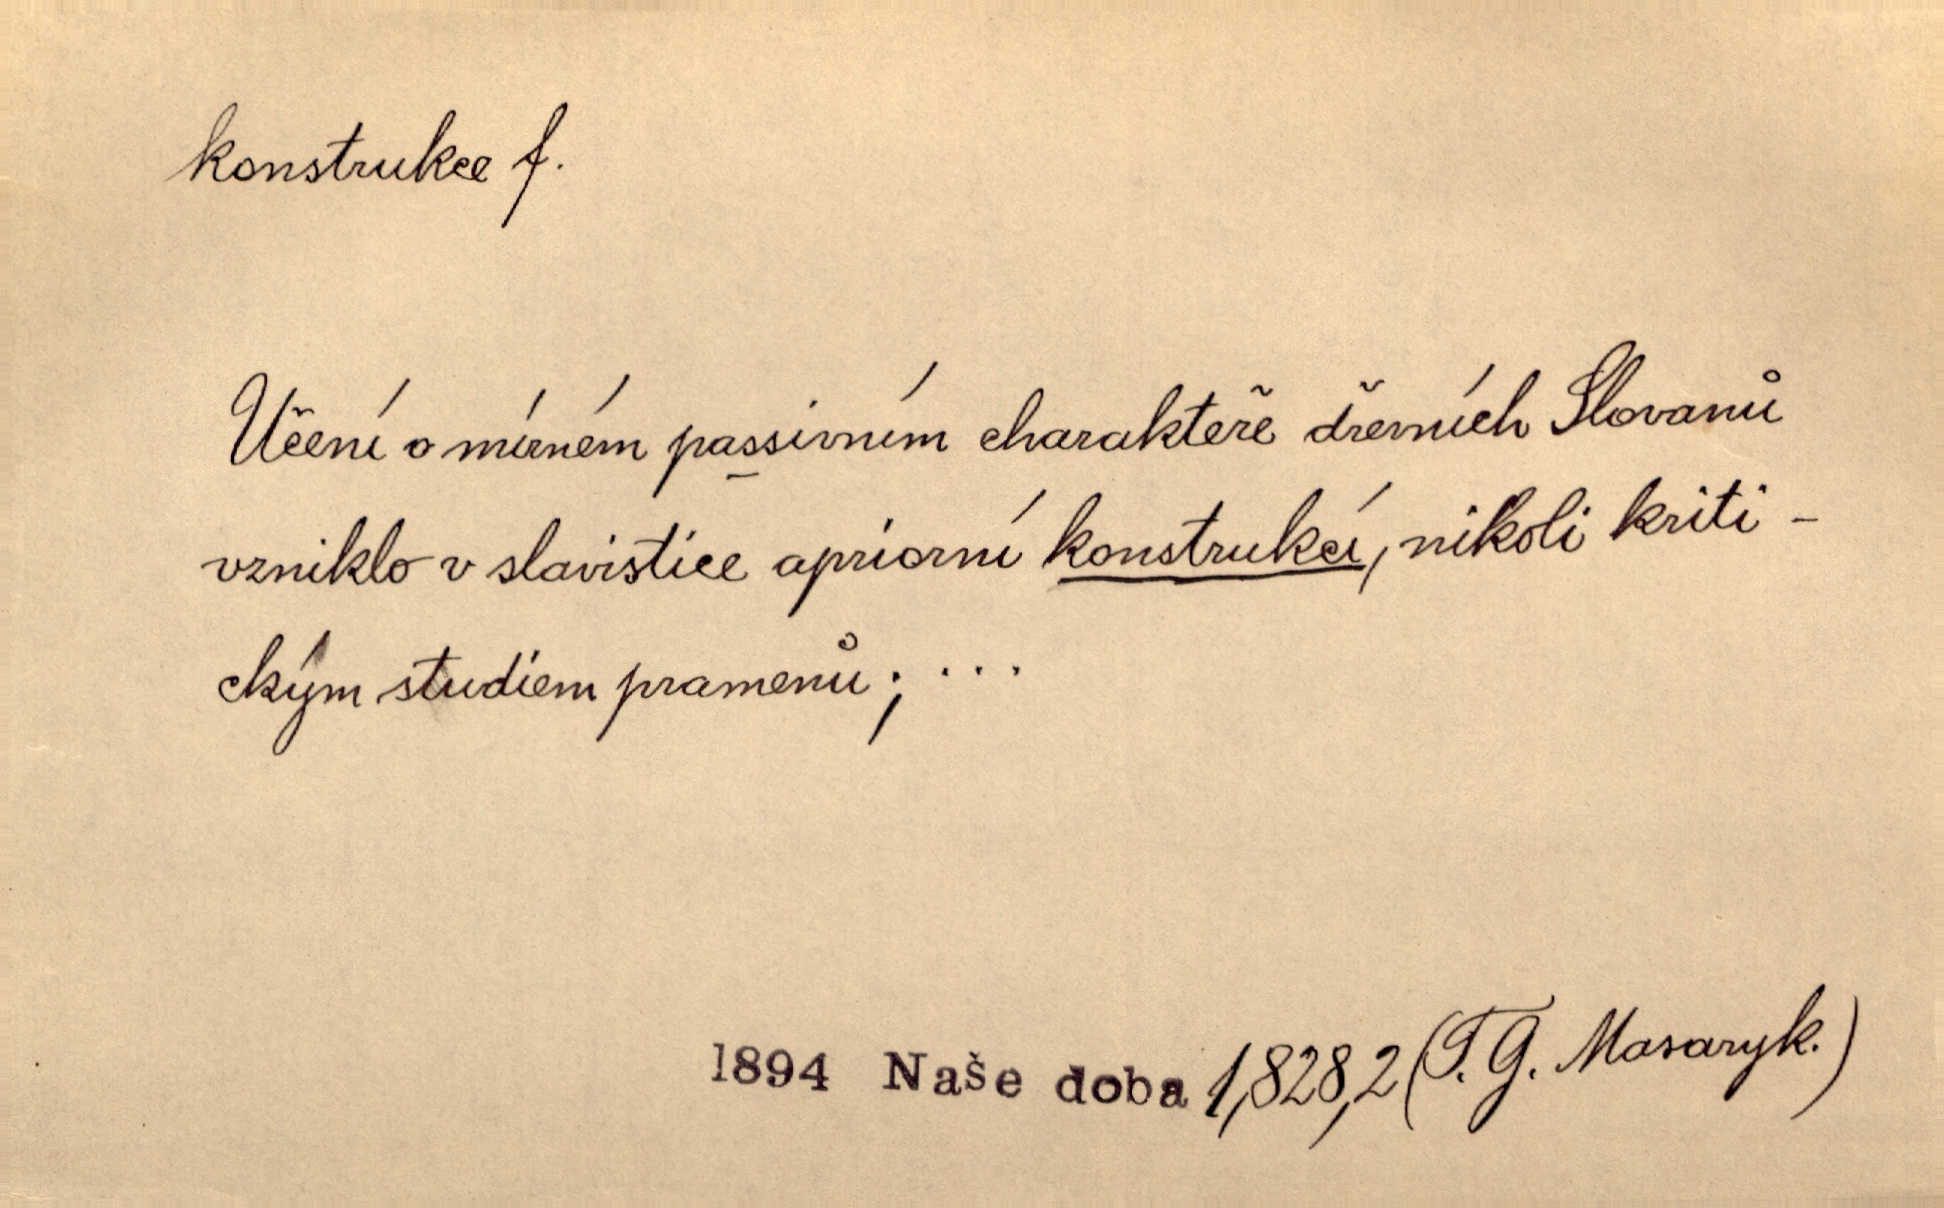 konstrukce f.
Učení o mírném passivním charakteře dřevních Slovanů
vzniklo v slavistice apriorní konstrukcí, nikoli kriti-
ckým studiem pramenů; ...
1894 Naše doba 1,828,2 (T. G. Masaryk.)